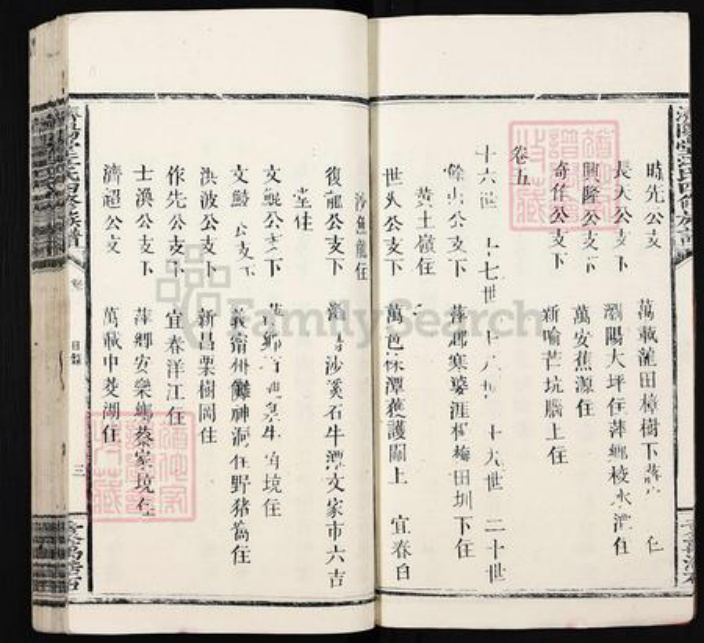 時先公支 萬載蓮田樟樹下
長人公支下 瀏陽大坪住萍鄉棱水漕住
興隆公支下 萬安焦源住
奇任公支下 新喻芒坑腦上住
卷五
十六世 十七世 十八世 十九世 二十世
公支下 萍鄉寒婆涯楊梅田圳下住
黃土嶺住
公支下 萬邑 潭獲護關上 宜春白
沙魚龍住
復龍公支下 沙溪石牛潭文家市六吉
堂住
文鯤公支下 角境住
文鯨公支下 義甯州 神洞住野豬窩住
洪波公支下 新昌栗樹岡住
作先公支下 宜春洋江住
士漢公支下 萍鄉安樂鄉蔡家境住
濟超公支 萬載中茭湖住
氏四修族譜
卷
目錄
三
FamilySearch